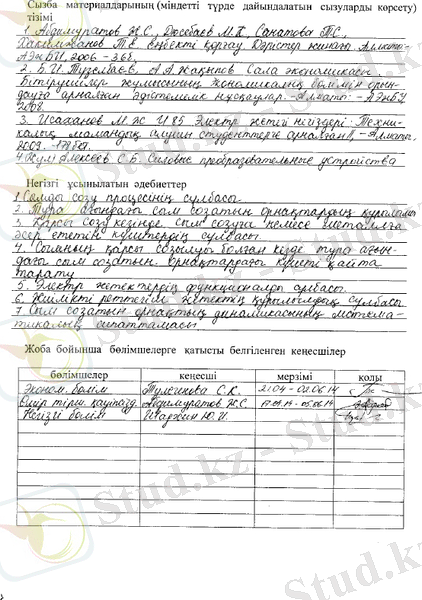 Сызба материалдарының (міндетті түрде дайындалатын сызуларды көрсету)
тізімі
1. Абдимуратов Ж.С., Дюсебаев М.К., Санатова Т.С.,
Хакимжанов Т.Е. еңбекті қорғау Дәрістер жинағы. Алматы-
АЭжБИ, 2006 - 36б.
2. Б.И. Түзелбаев, А.А. Жақыпов Сала экономикасы.
Бітірушілер жұмысының экономикалық бөлімін орын-
дауға арналған әдістемелік нұсқаулар. - Алматы: - АЭжБИ
2008.
3. Исаханов М.Ж. И 85 Электр жетегі негіздері: Техни-
калық мамандық студенттерге арналған, - Алматы,
2009. -
4. Алексеев С.Б. Силовые преобразовательные устройства
Негізгі ұсынылатын әдебиеттер
1. Сымды созу процесінің сұлбасы.
2. Тура ағындағы сым созатын орнақтардың құрылысы
3. Қарсы созу кезінде сым созуға немесе металлға
әсер ететін күштердің сұлбасы.
4. қарсы созылуы болған кезде тура ағын-
дағы сым созатын орнақтардағы күшті қайта
тарату
5. Электр жетектердің функционалды сұлбасы.
6. Жиілікті реттегіш жетектің құрылымдық сұлбасы
7. Сым созатын орнақтың динамикасының матема-
тикалық сипаттамасы.
Жоба бойынша бөлімшелерге қатысты белгіленген кеңесшілер
бөлімшелер кеңесші мерзімі қолы
Эконом. бөлім Тулегинова С.К. 21.04 - 02.06.14
Өмір тірш. қауіпсізд. Абдимуратов Ж.С. 17.04.14 - 05.06.14
Негізгі бөлім Ю.И.
Stud.kz - Stud.kz
Stud.kz - Stud.kz
Stud.kz